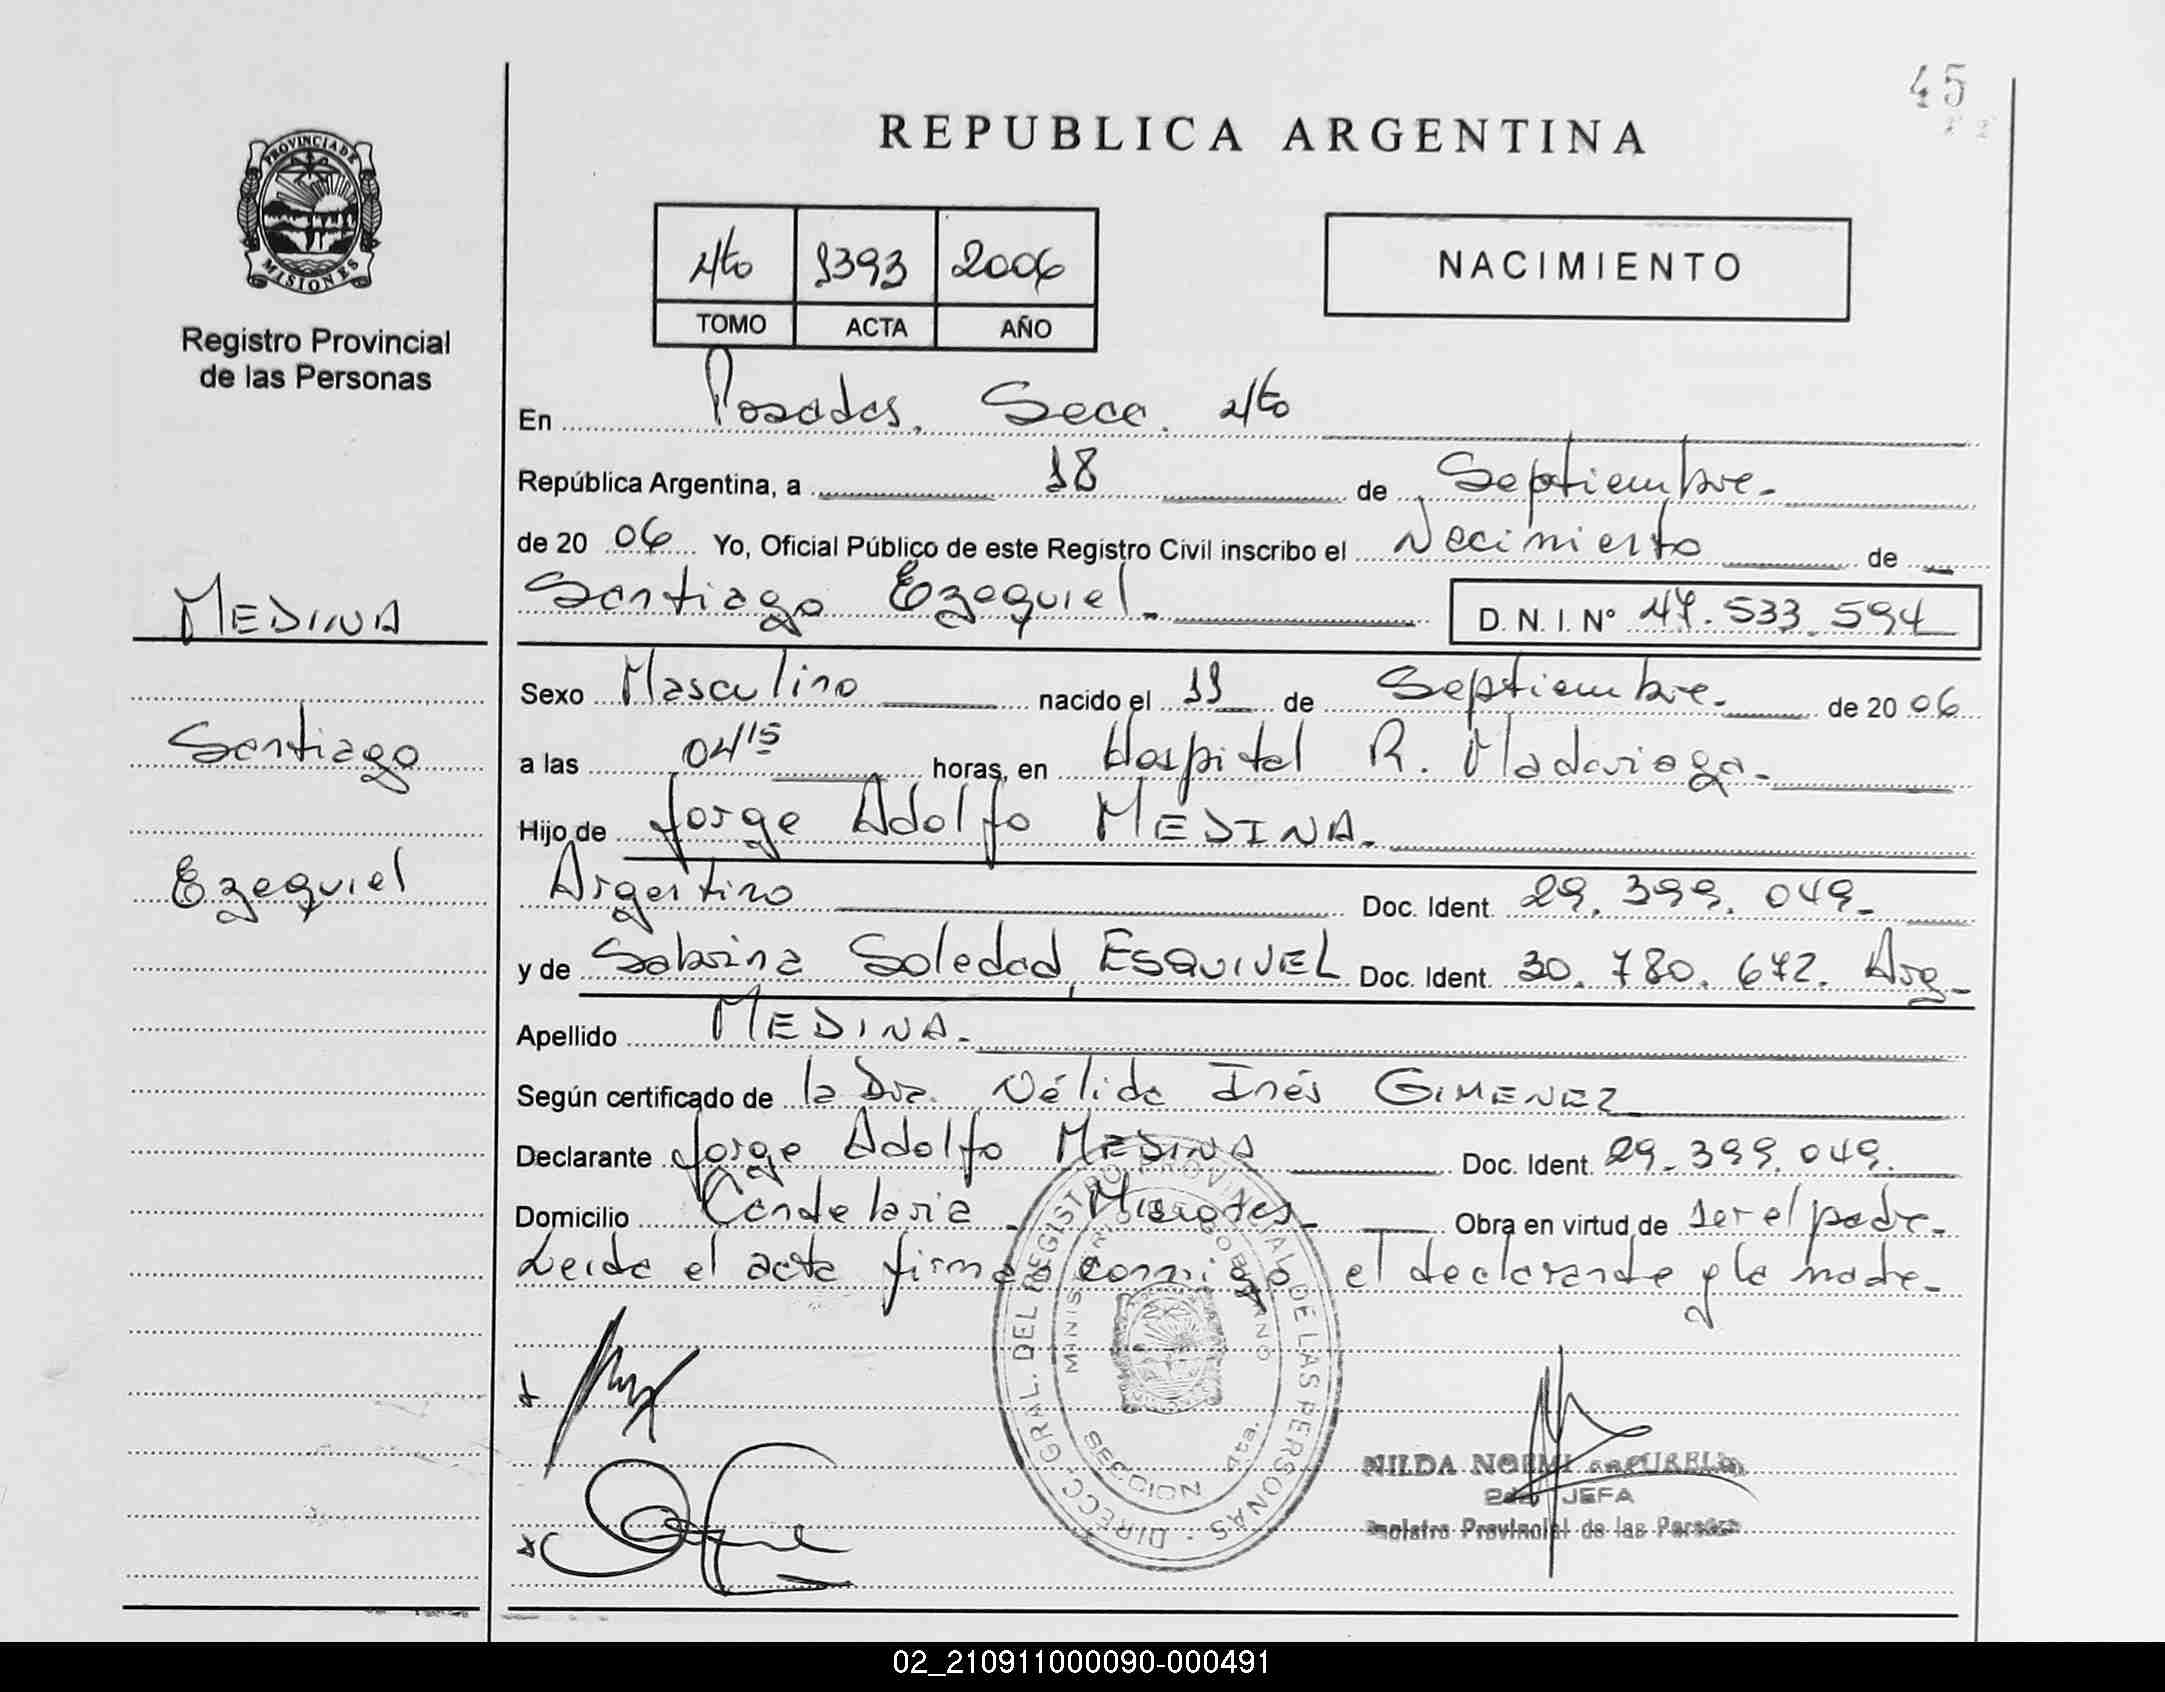 45
PROVINCIA DE
MISIONES
Registro Provincial
de las Personas
REPUBLICA ARGENTINA
4to 1393 2006
TOMO ACTA AÑO
NACIMIENTO
En Posadas, Secc. 4to
República Argentina, a 18 de Septiembre.
de 20 06 Yo, Oficial Público de este Registro Civil inscribo el Nacimiento de
MEDINA
Santiago
Ezequiel
Santiago Ezequiel. D. N. I. Nº 47.533.594
Sexo Masculino nacido el 11 de Septiembre. de 20 06
a las 04 15 horas, en Hospital R. Madariaga.
Hijo de Jorge Adolfo MEDINA.
Argentino Doc. Ident. 29.399.049.
y de Sabrina Soledad ESQUIVEL Doc. Ident. 30.780.672. Arg.
Apellido MEDINA.
Según certificado de la Dra. Nélida Inés GIMENEZ
Declarante Jorge Adolfo MEDINA Doc. Ident. 29.399.049.
Domicilio Candelaria - Misiones. Obra en virtud de ser el padre.
Leída el acta firman conmigo el declarante y la madre.
DIRECC. GRAL. DEL REGISTRO PROVINCIAL DE LAS PERSONAS
MINISTERIO DE GOBIERNO
SECCION 4ta.
NILDA NOEMI
2da JEFA
Registro Provincial de las Personas
02_210911000090-000491